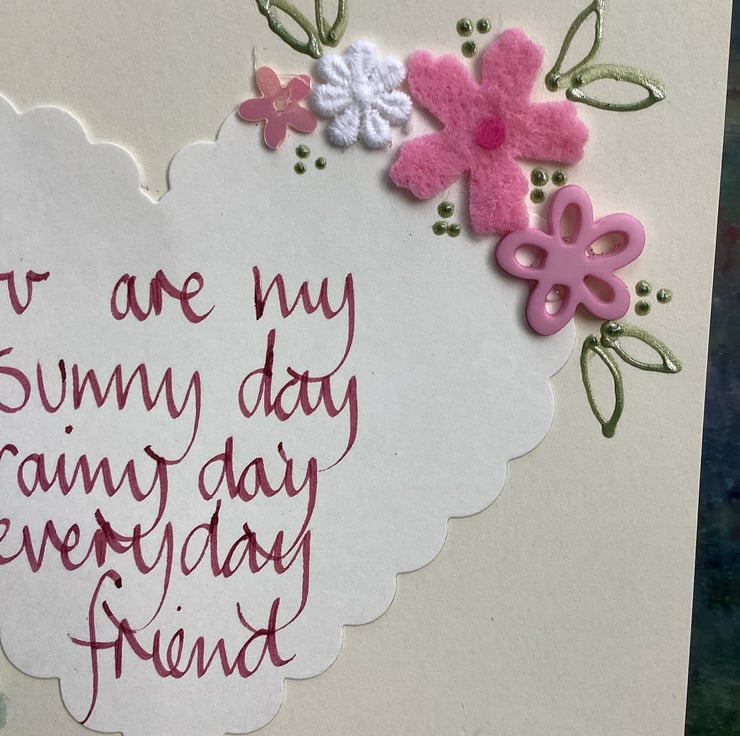 u are my
sunny day
rainy day
everyday
friend